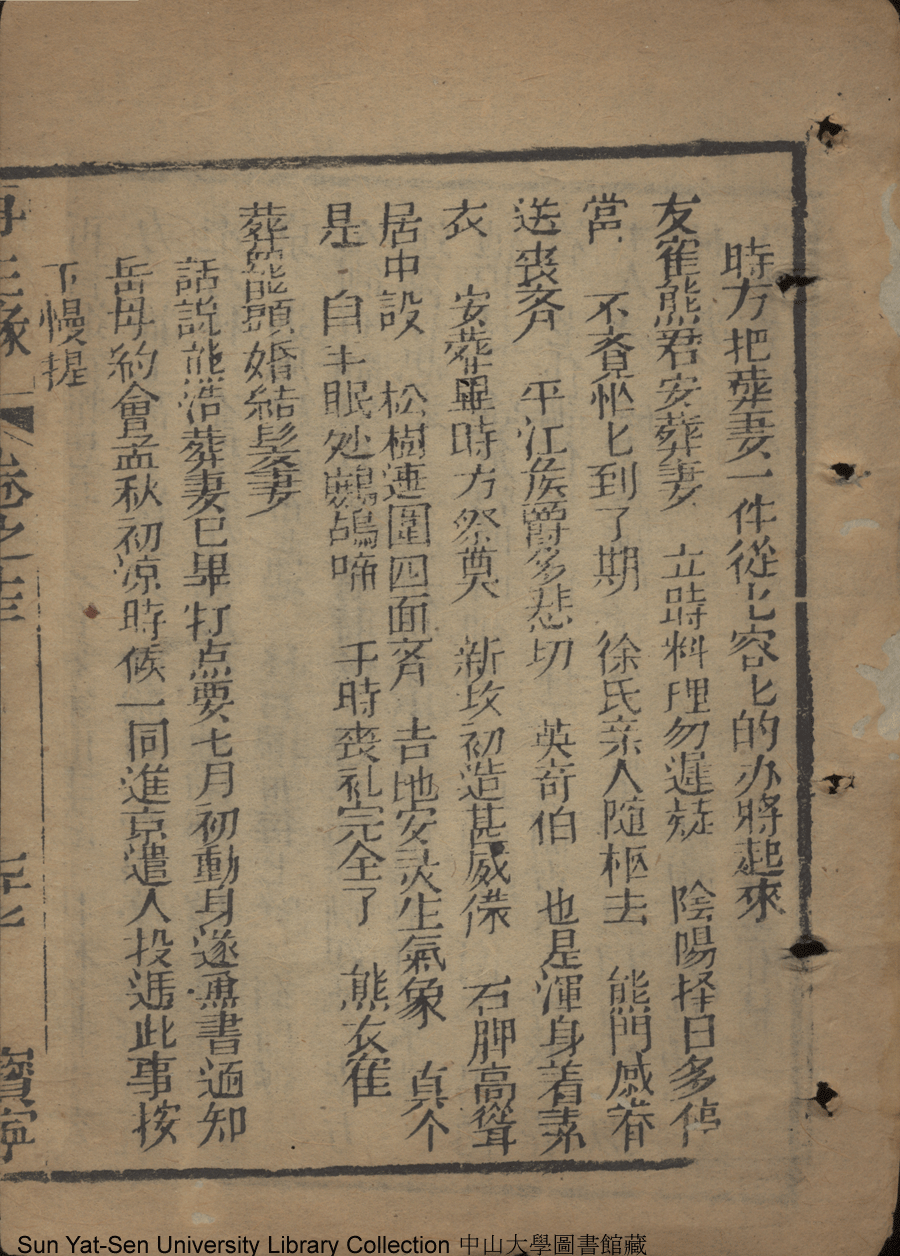 時方把塟妻一件從匕容匕的办將起來
友寉熊君安葬妻　立時料理勿遲疑　陰陽择日多停
當　不覔忙匕到了期　徐氏亲人隨柩去　熊門戚眷
送喪斉　平江侯爵多悲切　英奇伯　也是渾身着素
衣　安葬畢時方祭奠　新坟初造甚威傸　石牌高聳
居中設　松樹連圍四面斉　吉地安灵生氣象　真个
是　自　眠处鷓鴣啼　千時喪礼完全了　熊衣寉
葬　熊頭婚結髮妻
話說熊浩葬妻已畢打点要七月初動身遂　書通知
岳母約會孟秋初凉時候一同進京遣人投逓此事按
下慢提
再生緣　卷之十
寶寧
Sun Yat-Sen University Library Collection 中山大學圖書館藏